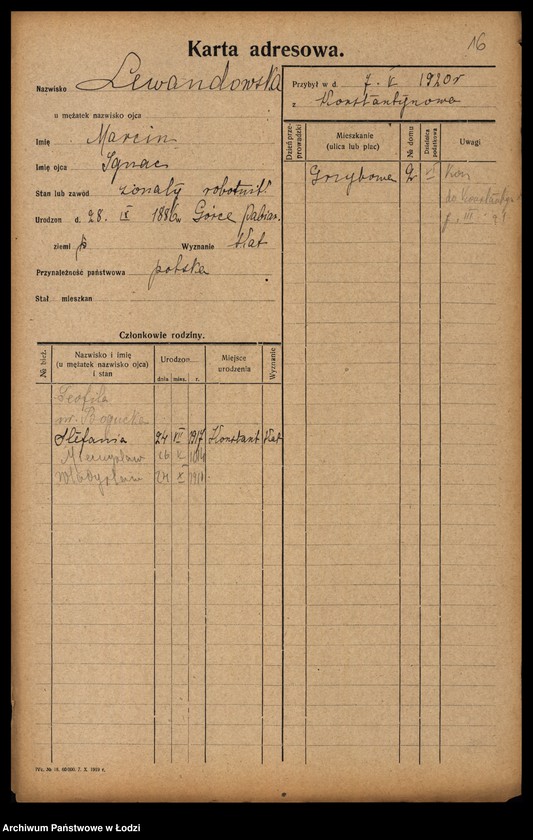 16
Karta adresowa.
Nazwisko Lewandowska
u mężatek nazwisko ojca
Imię Marcin
Imię ojca Ignac
Stan lub zawód żonaty robotnik
Urodzon d. 28. IX 1886 w Górce Pabian.
ziemi p Wyznanie kat
Przynależność państwowa polska
Stał. mieszkan
Przybył w d. 7. V 1920 r
z Konstantynowa
Dzień przeprowadzki
Mieszkanie
(ulica lub plac)
№ domu
Dzielnica podatkowa
Uwagi
Grzybowa 2 VI
do Konstant
Członkowie rodziny.
№ bież.
Nazwisko i imię
(u mężatek nazwisko ojca)
i stan
Urodzon
dnia mies. r.
Miejsce
urodzenia
Wyznanie
Teofila
Bogucka
Stefania 24 VII 1917 Konstant kat
Mieczysław 26
Władysława 24 X
Archiwum Państwowe w Łodzi